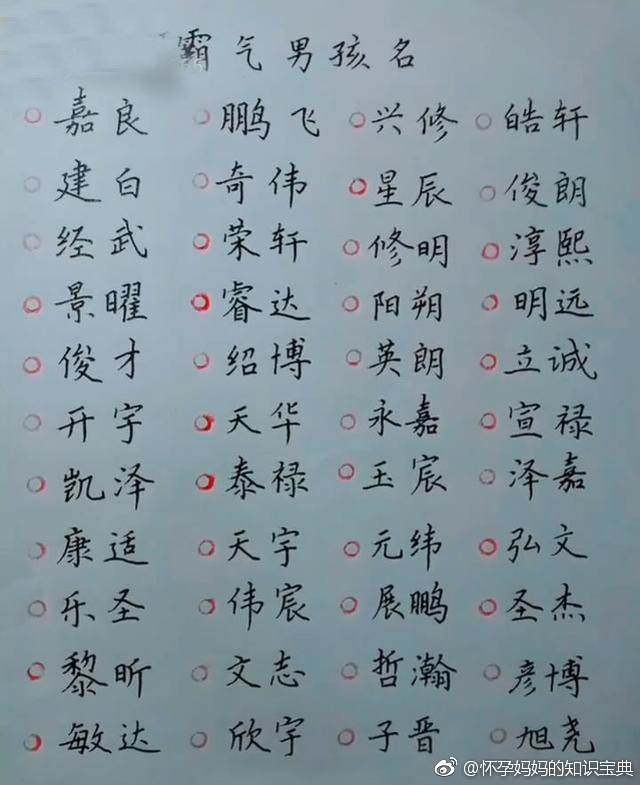 霸气男孩名
嘉良 鹏飞 兴修 皓轩
建白 奇伟 星辰 俊朗
经武 荣轩 修明 淳熙
景曜 睿达 阳朔 明远
俊才 绍博 英朗 立诚
开宇 天华 永嘉 宣禄
凯泽 泰禄 玉宸 泽嘉
康适 天宇 元纬 弘文
乐圣 伟宸 展鹏 圣杰
黎昕 文志 哲瀚 彦博
敏达 欣宇 子晋 旭尧
@怀孕妈妈的知识宝典